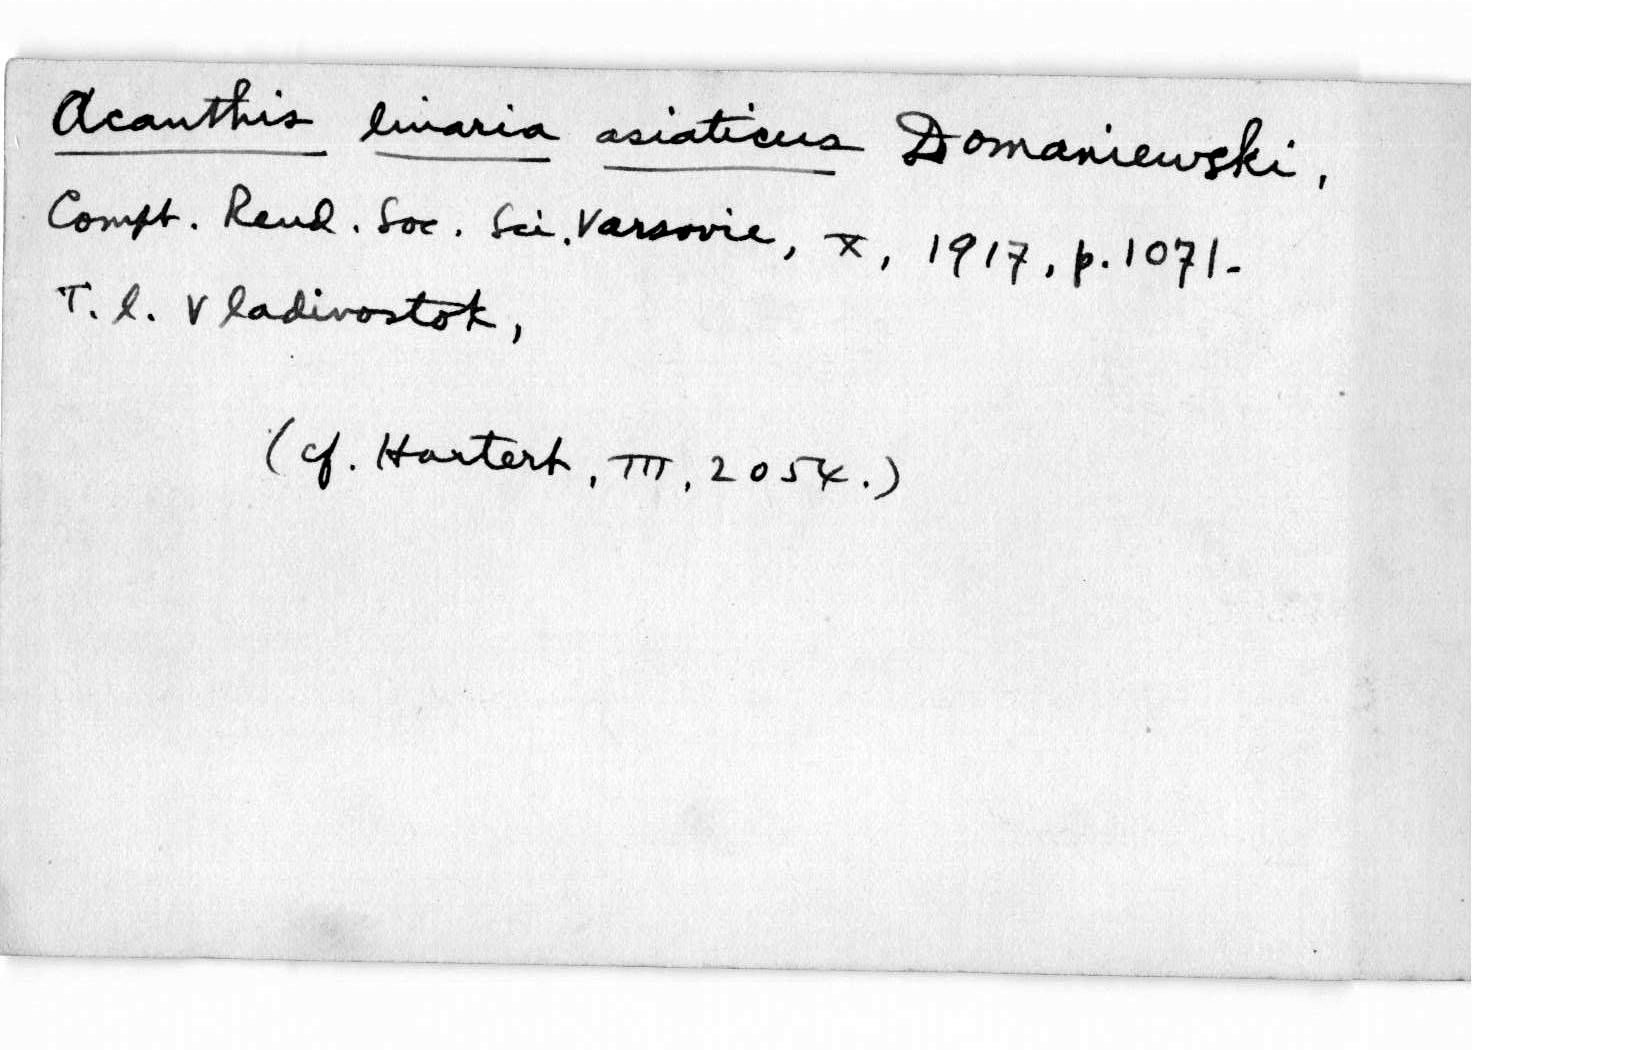 Acanthis linaria asiaticus Domaniewski,
Compt. Rend. Soc. Sci. Varsovie, X, 1917, p. 1071-
T. l. Vladivostok,
(cf. Hartert, III, 2054.)